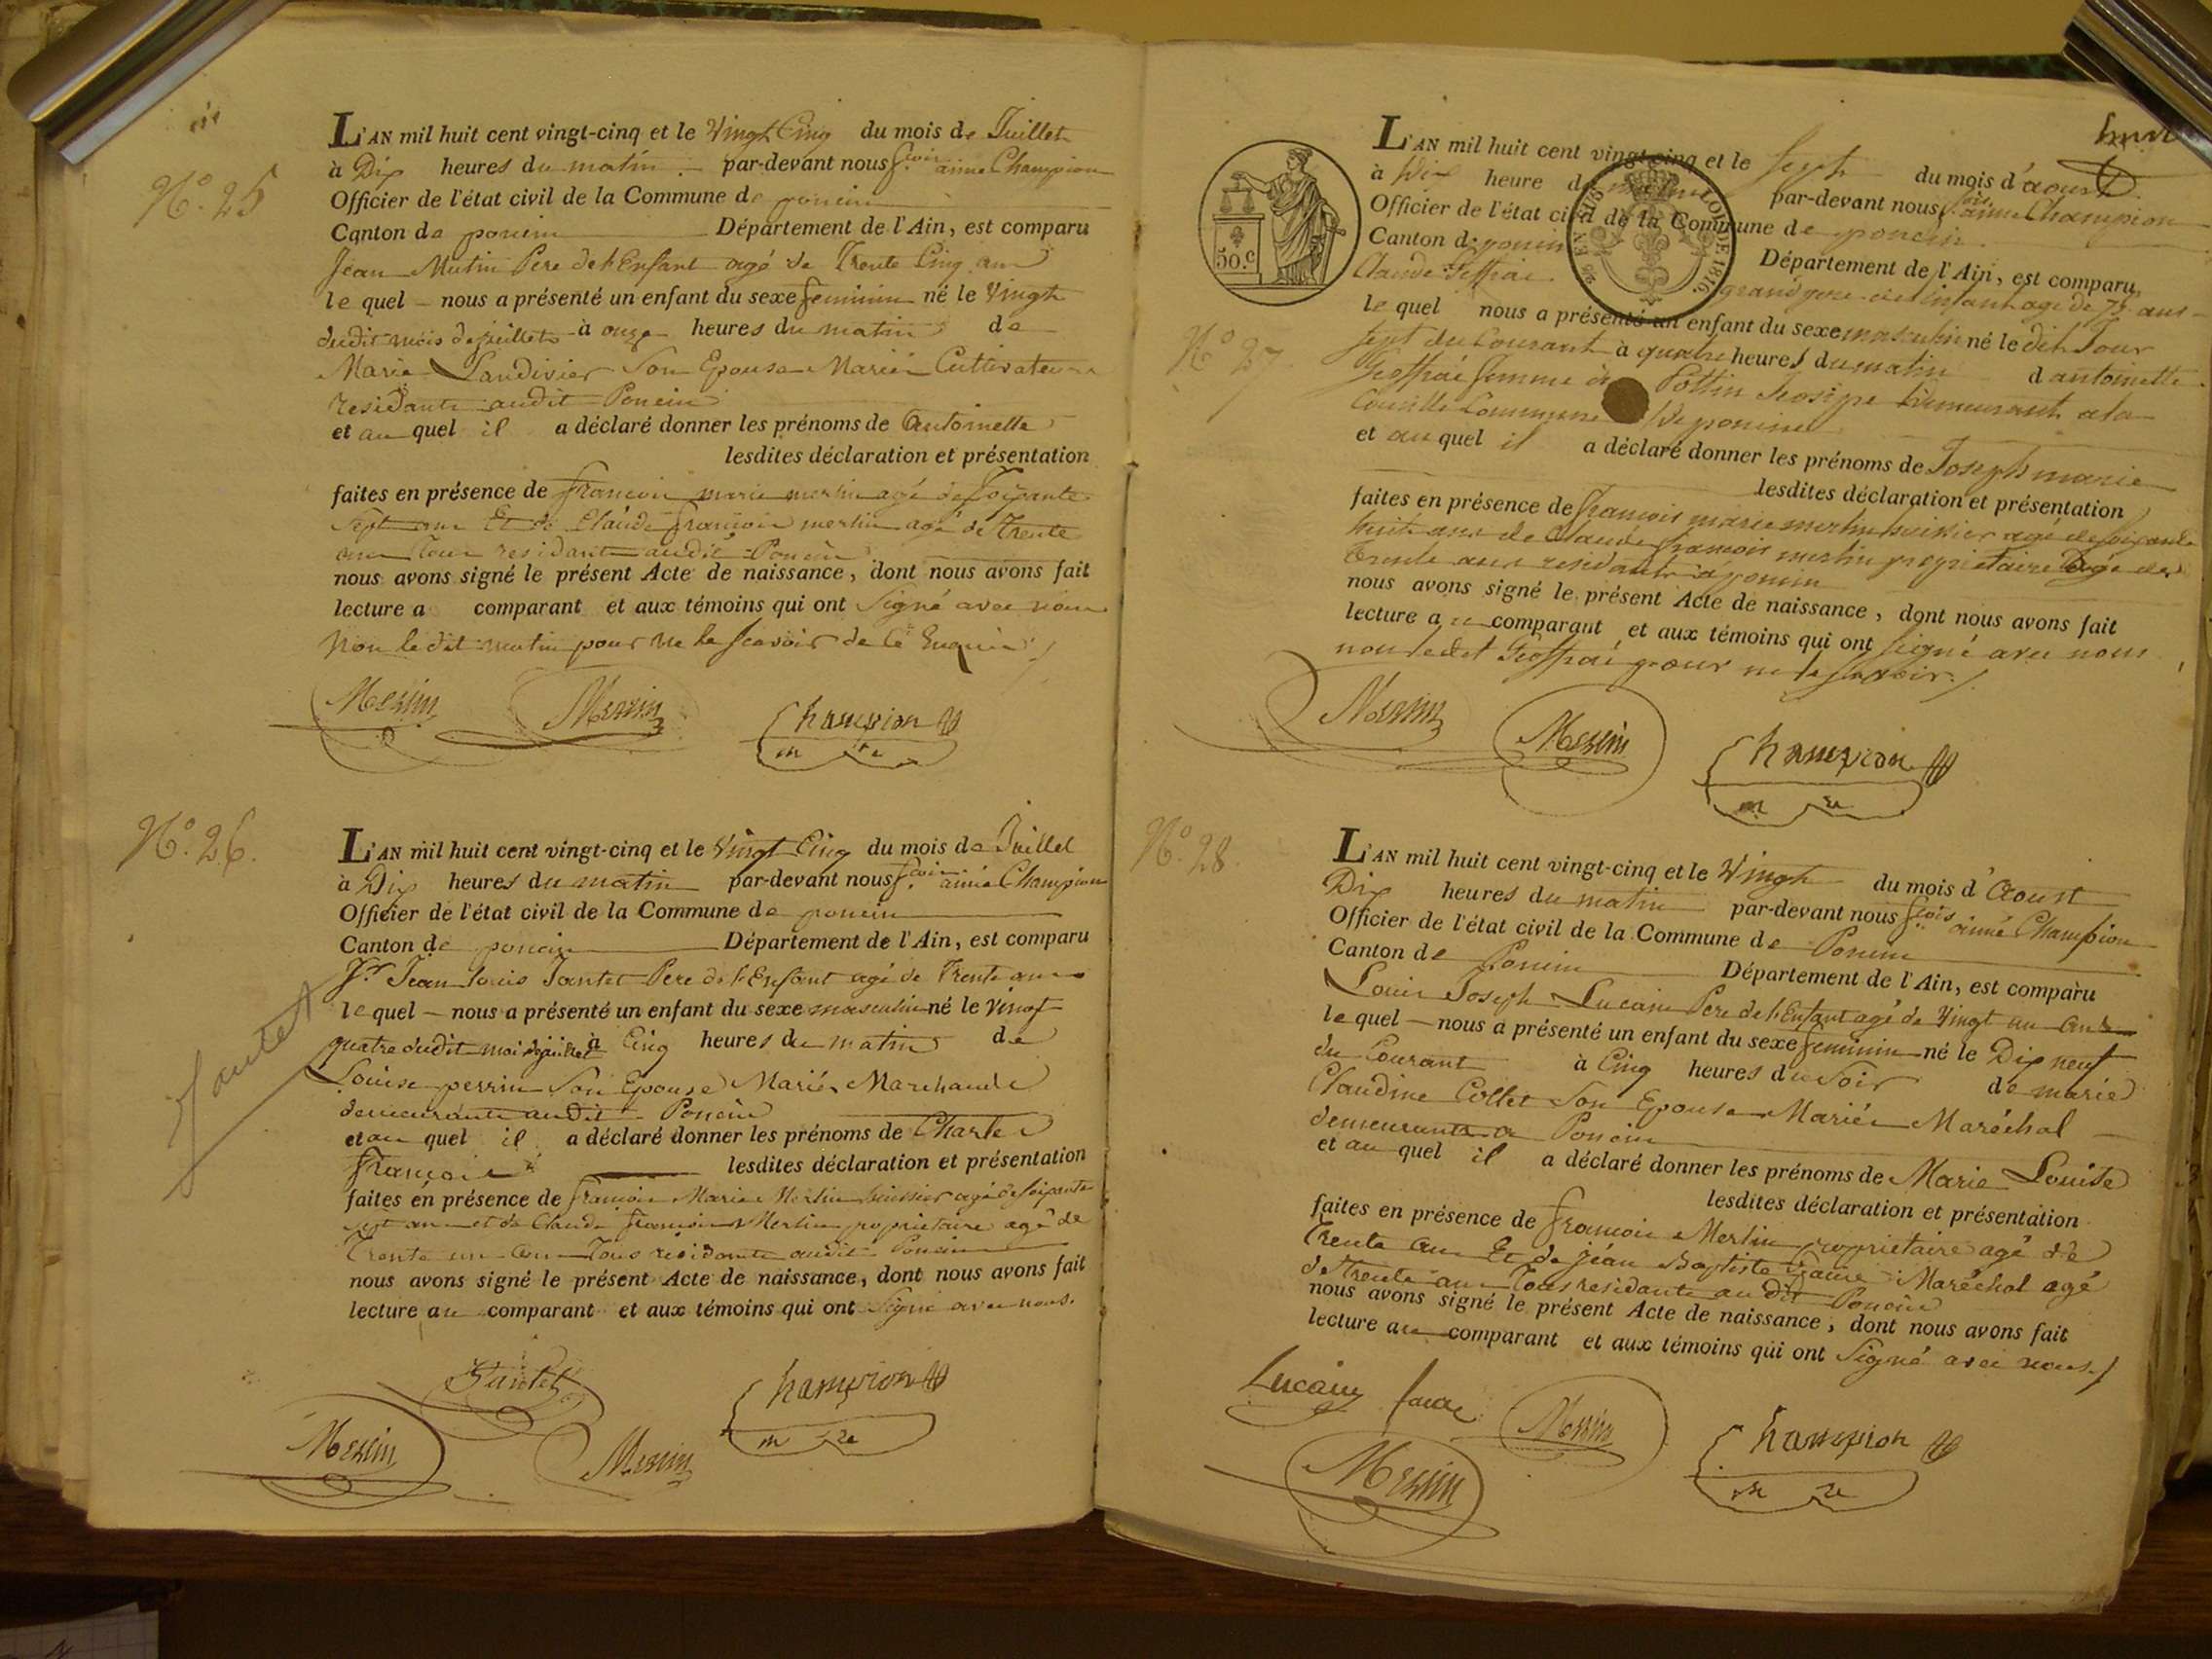 N.o 25
L'AN mil huit cent vingt-cinq et le Vingt Cinq du mois de Juillet
à Dix heures du matin par-devant nous f.cois aimé Champion
Officier de l'état civil de la Commune de poncin
Canton de poncin Département de l'Ain, est comparu
Jean Mutin Pere de l'Enfant agé de Trente Cinq ans
le quel nous a présenté un enfant du sexe feminin né le Vingt
dudit mois de juillet à onze heures du matin de
Marie Landivier Son Epouse Mariés Cultivateurs
residants audit Poncin
et au quel il a déclaré donner les prénoms de Antoinette
lesdites déclaration et présentation
faites en présence de françois marie merlin agé de Soixante
Sept ans Et de Claude françois merlin agé de trente
ans Tous residants audit Poncin
nous avons signé le présent Acte de naissance, dont nous avons fait
lecture a comparant et aux témoins qui ont Signé avec nous
Non le dit mutin pour ne le scavoir de ce Enquis
Merlin Merlin Champion
m re
N.o 26.
Jantet
L'AN mil huit cent vingt-cinq et le Vingt Cinq du mois de Juillet
à Dix heures du matin par-devant nous f.cois aimé Champion
Officier de l'état civil de la Commune de poncin
Canton de poncin Département de l'Ain, est comparu
Sr Jean Louis Jantet Pere de l'Enfant agé de Trente ans
le quel nous a présenté un enfant du sexe masculin né le vingt
quatre dudit moi de juillet à Cinq heures du matin de
Louise perrin Son Epouse Mariés Marchands
demeurants audit Poncin
et au quel il a déclaré donner les prénoms de Charles
François lesdites déclaration et présentation
faites en présence de françois Marie Merlin huissier agé de soixante
Sept ans et de Claude françois Merlin proprietaire agé de
Trente un ans Tous résidants audit Poncin
nous avons signé le présent Acte de naissance, dont nous avons fait
lecture au comparant et aux témoins qui ont Signé avec nous.
Jantet Champion
Merlin Merlin m re
50.c
EN SUS
LOI DE 1816.
N.o 27.
L'AN mil huit cent vingt-cinq et le Sept du mois d'aoust
à Dix heure du matin par-devant nous f.cois aimé Champion
Officier de l'état civil de la Commune de poncin
Canton de poncin Département de l'Ain, est comparu
Claude Geoffrai grand pere de l'enfant agé de 73 ans
le quel nous a présenté un enfant du sexe masculin né le dit Jour
sept du Courant à quatre heures du matin d antoinette
Geoffrai femme de Pottin demeurant a la
Commune de poncin
et au quel il a déclaré donner les prénoms de Joseph marie
lesdites déclaration et présentation
faites en présence de françois marie merlin huissier agé de soixante
huit ans de Claude françois merlin proprietaire agé de
trente ans residants à poncin
nous avons signé le présent Acte de naissance, dont nous avons fait
lecture au comparant et aux témoins qui ont signé avec nous
non ledit Geoffrai pour ne le savoir
Merlin Merlin Champion
m re
N.o 28.
L'AN mil huit cent vingt-cinq et le Vingt du mois d'Aoust
Dix heures du matin par-devant nous f.cois aimé Champion
Officier de l'état civil de la Commune de Poncin
Canton de Poncin Département de l'Ain, est comparu
Louis Joseph Lucain Pere de l'Enfant agé de Vingt un ans
le quel nous a présenté un enfant du sexe feminin né le Dix neuf
du Courant à Cinq heures du Soir de marie
Claudine Collet Son Epouse Mariés Maréchal
demeurants a Poncin
et au quel il a déclaré donner les prénoms de Marie Louise
lesdites déclaration et présentation
faites en présence de françois Merlin proprietaire agé de
Trente ans Et de jéan Baptiste Maréchal agé
de trente ans Tous residants au dit Poncin
nous avons signé le présent Acte de naissance, dont nous avons fait
lecture au comparant et aux témoins qui ont Signé avec nous
Lucain Merlin Champion
Merlin m re